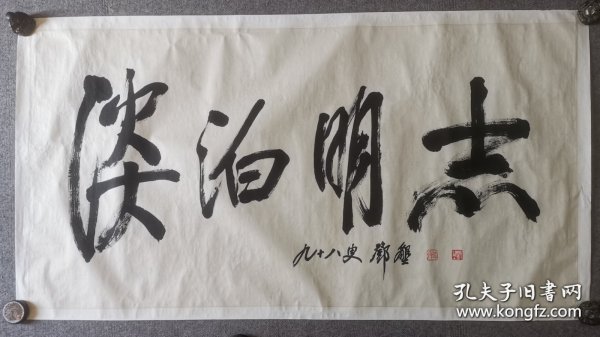 淡泊明志
九十八叟 鄧壑
孔夫子旧書网
www.kongfz.com